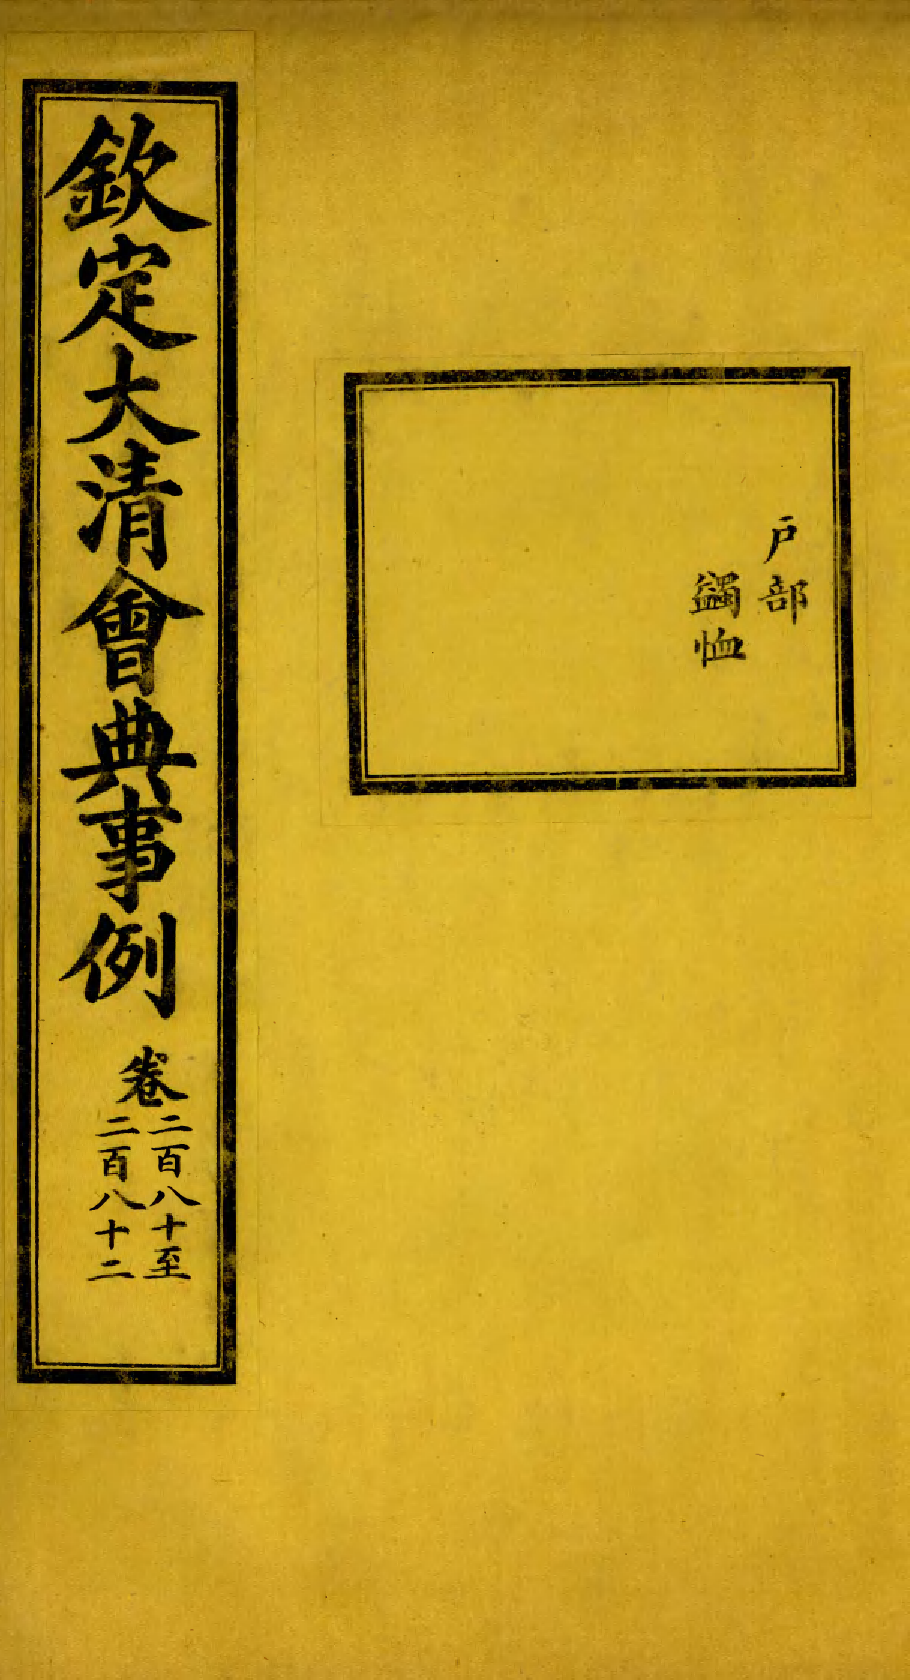 戶部
蠲恤
欽定大清會典事例
卷
二百八十至
二百八十二